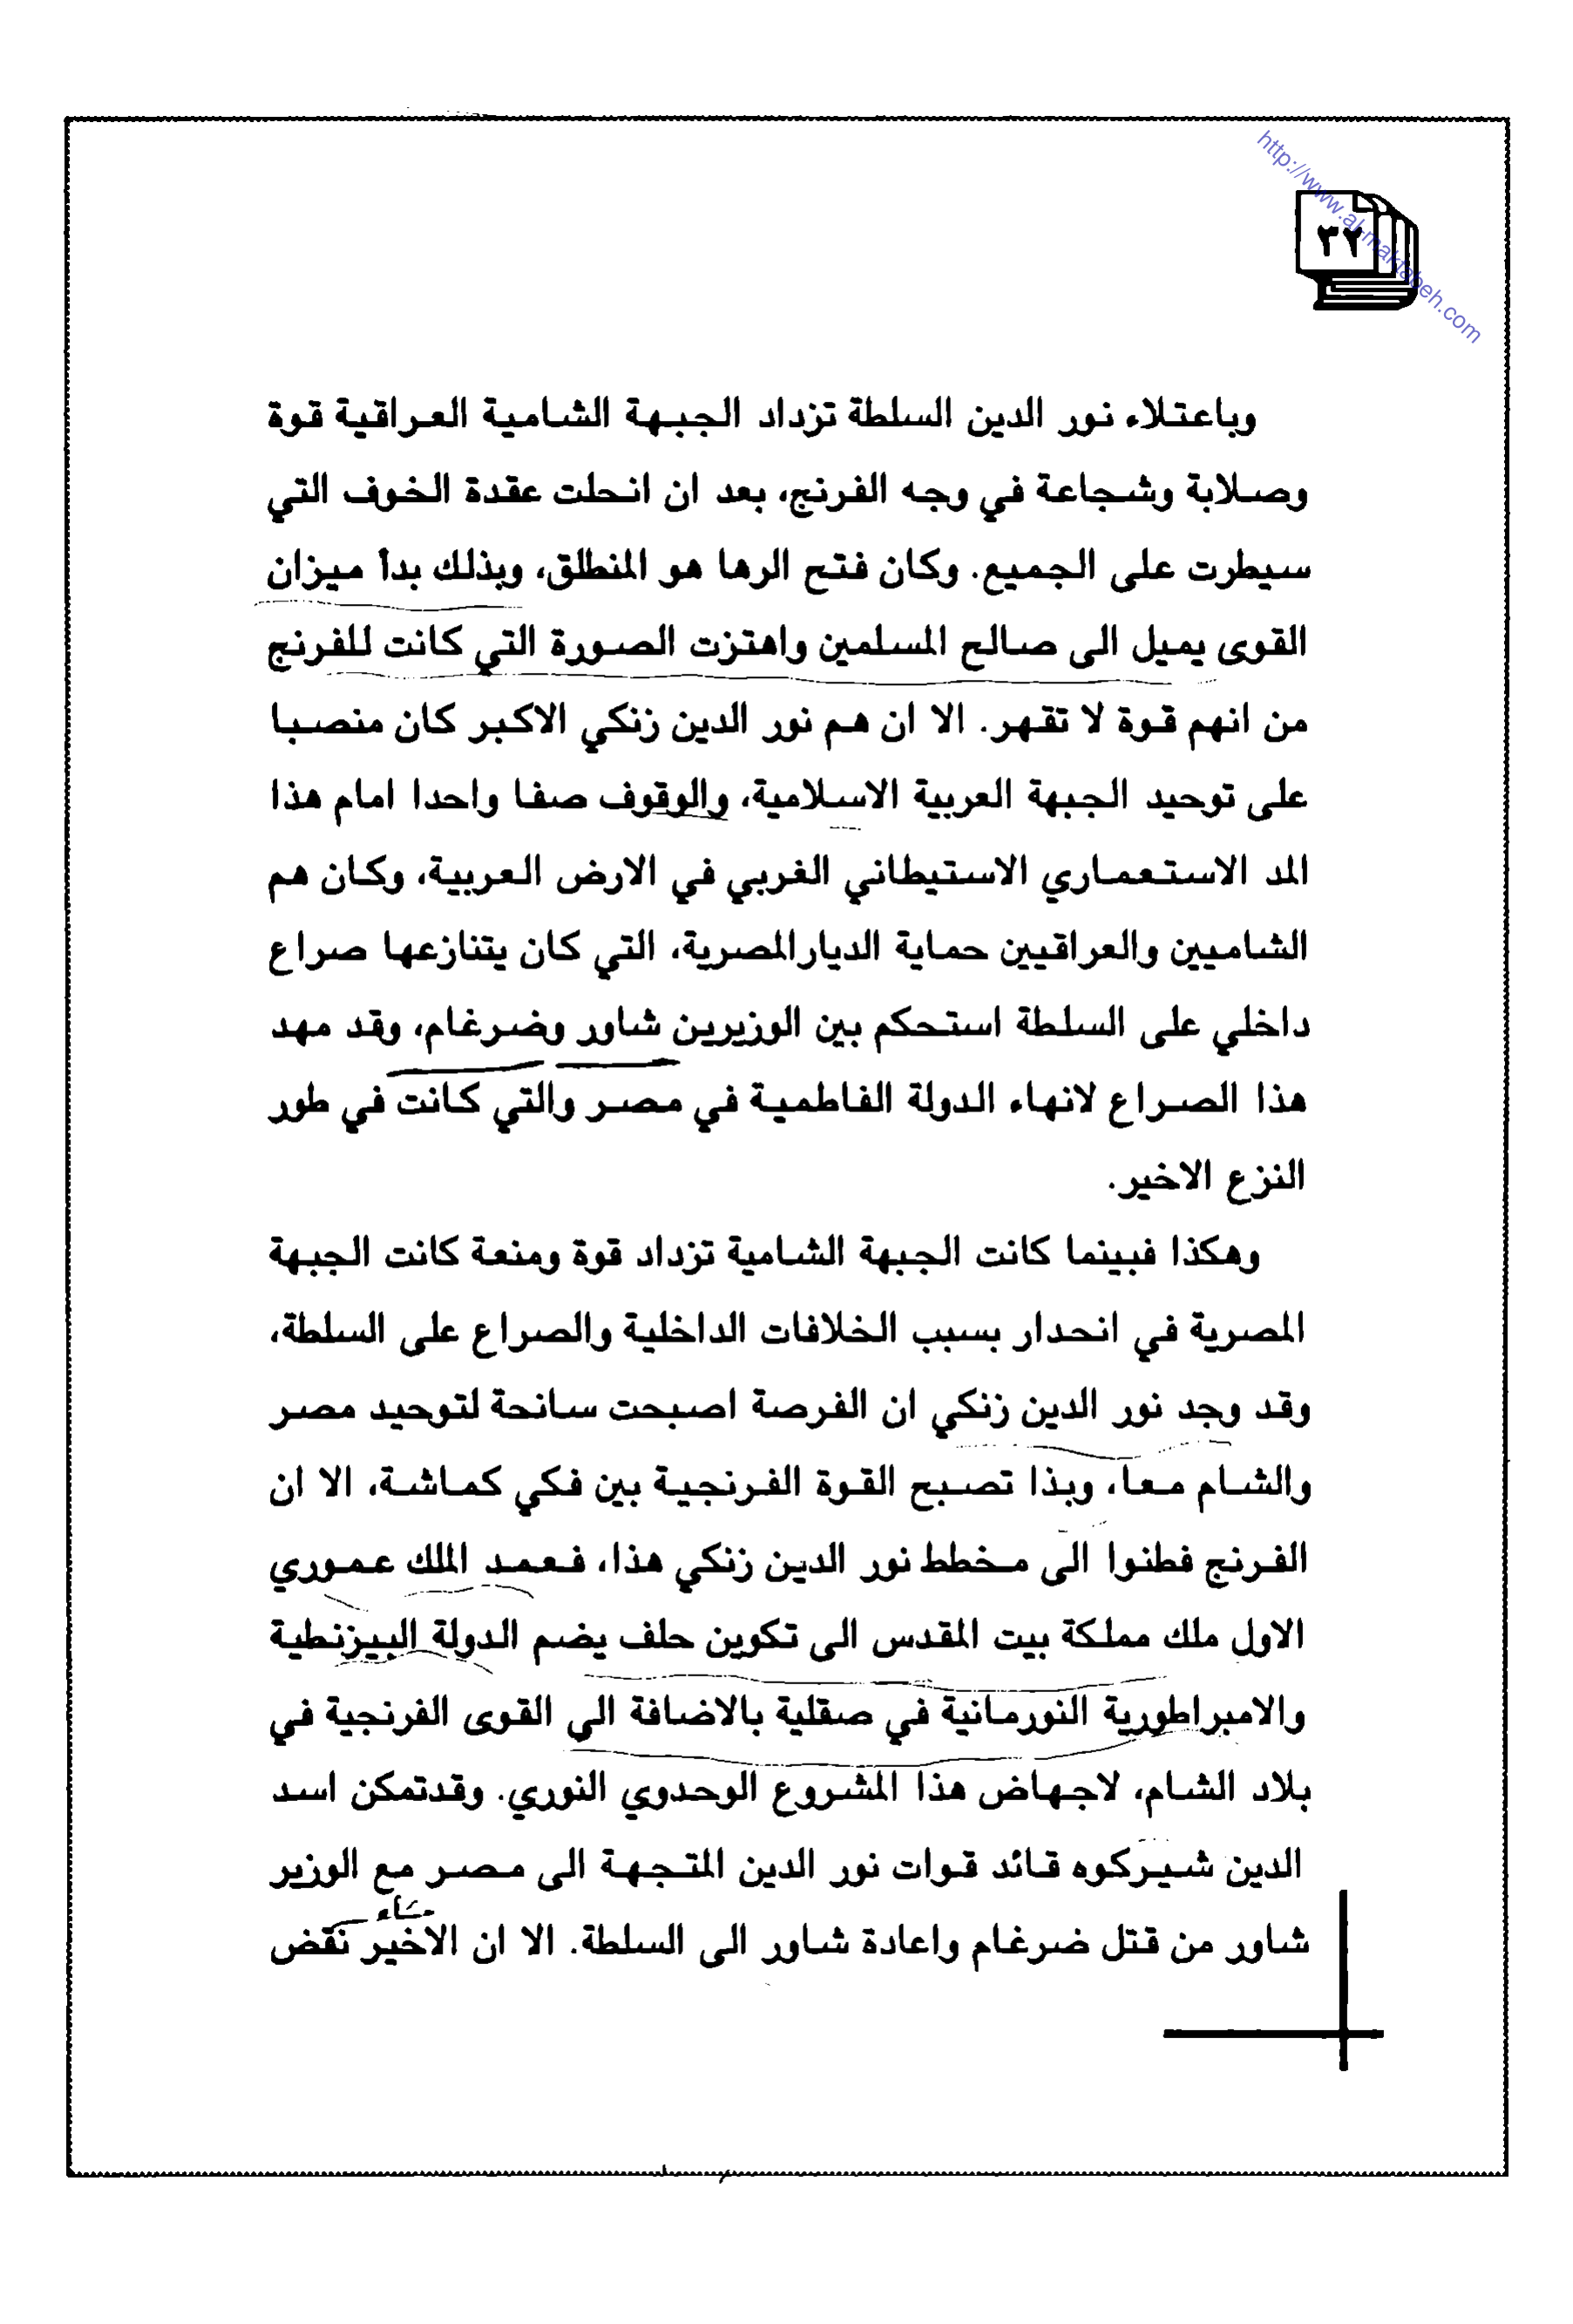 http://www.al-maktabeh.com
٣٢
وباعتلاء نور الدين السلطة تزداد الجبهة الشامية العراقية قوة
وصلابة وشجاعة في وجه الفرنج، بعد ان انحلت عقدة الخوف التي
سيطرت على الجميع. وكان فتح الرها هو المنطلق، وبذلك بدأ ميزان
القوى يميل الى صالح المسلمين واهتزت الصورة التي كانت للفرنج
من انهم قوة لا تقهر. الا ان هم نور الدين زنكي الاكبر كان منصبا
على توحيد الجبهة العربية الاسلامية، والوقوف صفا واحدا امام هذا
المد الاستعماري الاستيطاني الغربي في الارض العربية، وكان هم
الشاميين والعراقيين حماية الديارالمصرية، التي كان يتنازعها صراع
داخلي على السلطة استحكم بين الوزيرين شاور وضرغام، وقد مهد
هذا الصراع لانهاء الدولة الفاطمية في مصر والتي كانت في طور
النزع الاخير.
وهكذا فبينما كانت الجبهة الشامية تزداد قوة ومنعة كانت الجبهة
المصرية في انحدار بسبب الخلافات الداخلية والصراع على السلطة،
وقد وجد نور الدين زنكي ان الفرصة اصبحت سانحة لتوحيد مصر
والشام معا، وبذا تصبح القوة الفرنجية بين فكي كماشة، الا ان
الفرنج فطنوا الى مخطط نور الدين زنكي هذا، فعمد الملك عموري
الاول ملك مملكة بيت المقدس الى تكوين حلف يضم الدولة البيزنطية
والامبراطورية النورمانية في صقلية بالاضافة الى القوى الفرنجية في
بلاد الشام، لاجهاض هذا المشروع الوحدوي النوري. وقدتمكن اسد
الدين شيركوه قائد قوات نور الدين المتجهة الى مصر مع الوزير
شاور من قتل ضرغام واعادة شاور الى السلطة. الا ان الاخير نقض